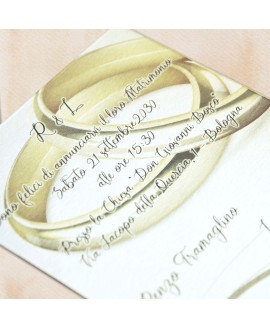 R & L
sono felici di annunciarvi il loro Matrimonio
Sabato 21 settembre 2030
alle ore 15.30
Presso la Chiesa "Don Giovanni Bosco"
Via Jacopo della Quercia 1 - Bologna
Renzo Tramaglino